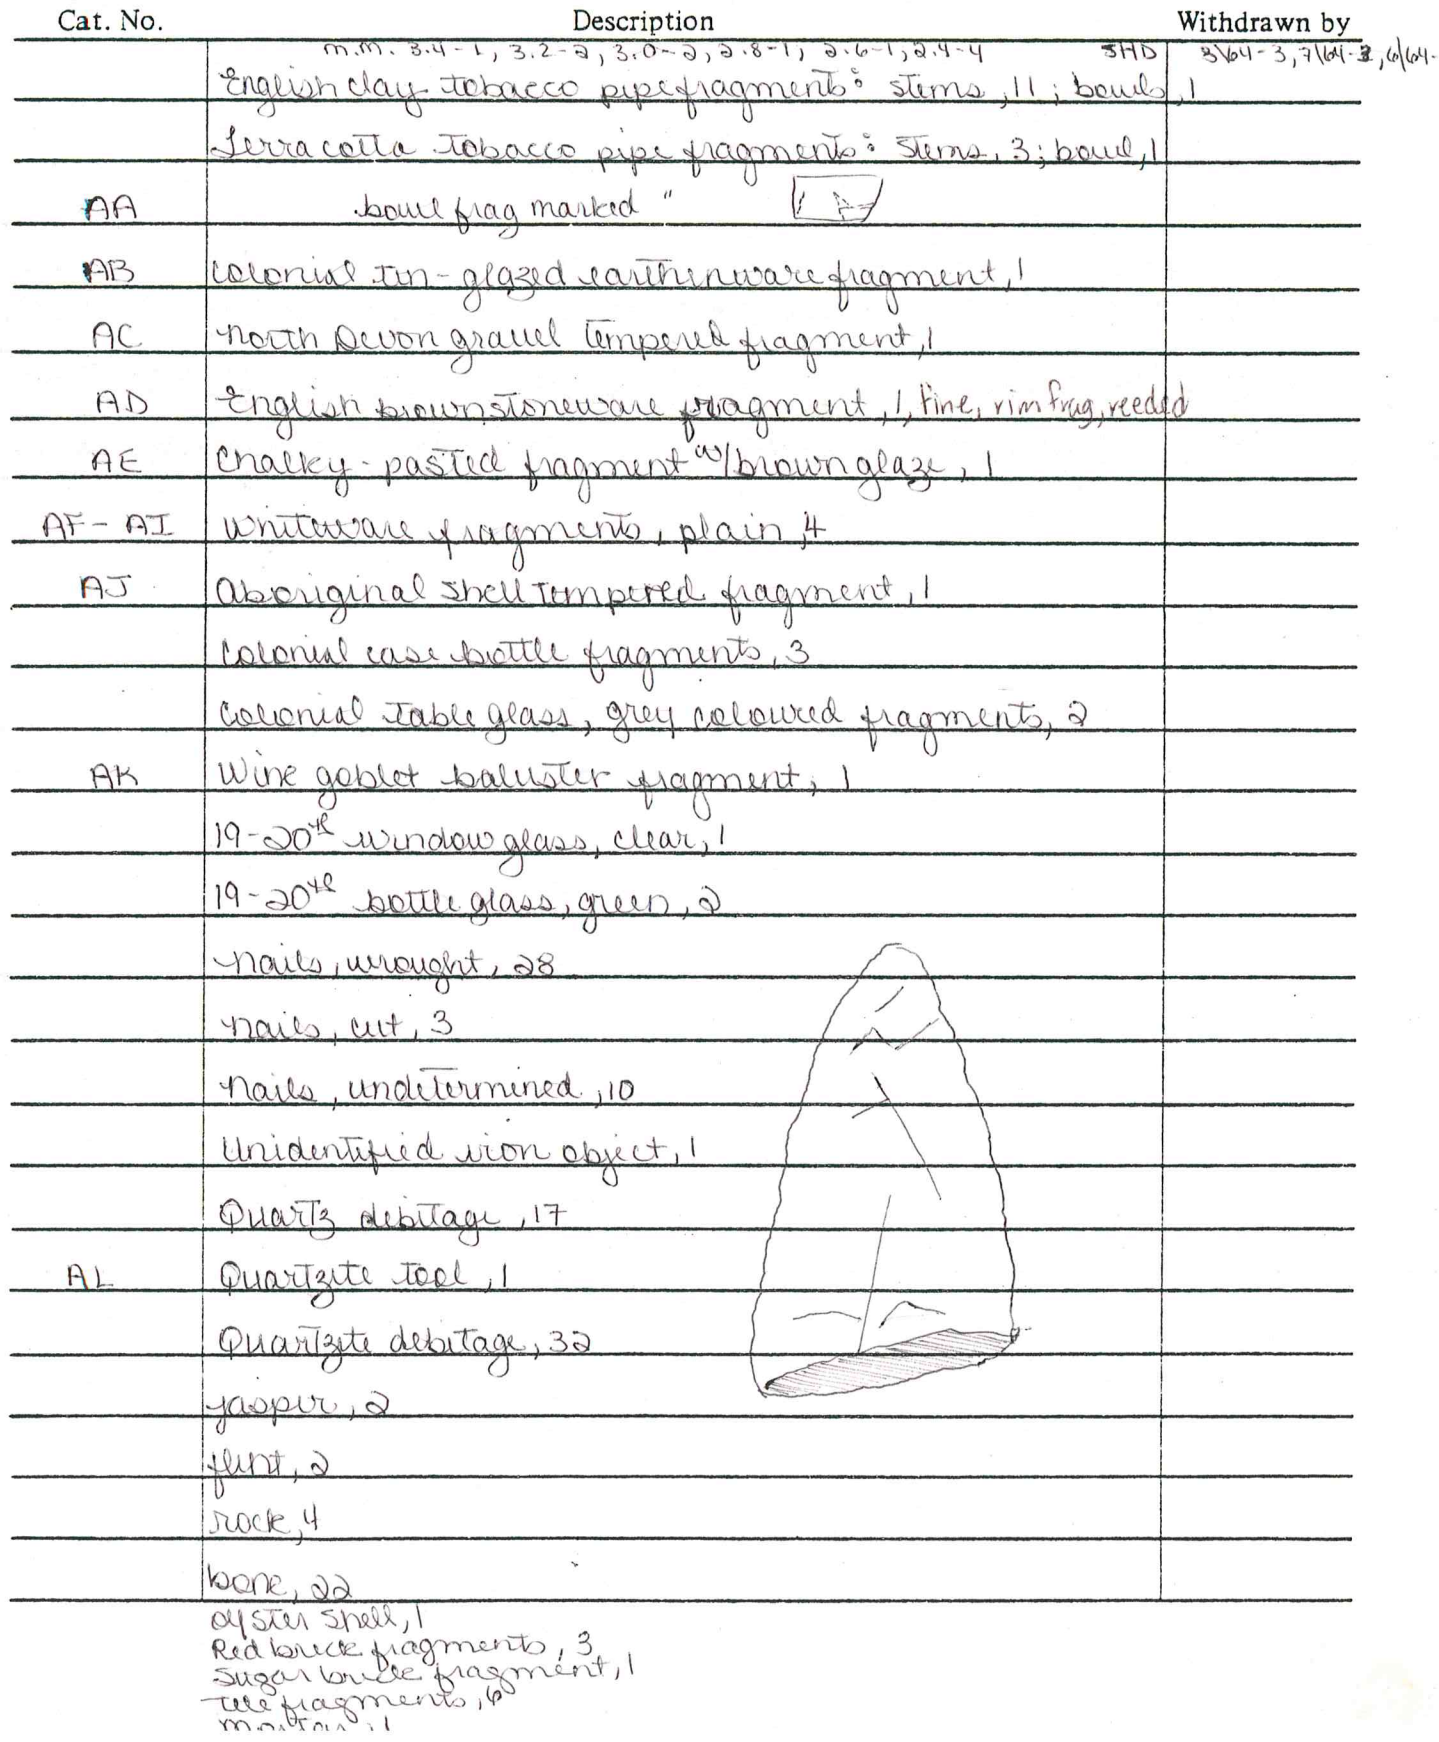 Cat. No. Description Withdrawn by
m.m. 3.4-1, 3.2-2, 3.0-2, 2.8-1, 2.6-1, 2.4-4 SHD 8/64-3, 7/64-2, 6/64-
English clay tobacco pipe fragments: stems, 11; bowls, 1
Terra cotta tobacco pipe fragments: stems, 3; bowl, 1
AA bowl frag marked "
AB Colonial tin-glazed earthenware fragment, 1
AC North Devon gravel tempered fragment, 1
AD English brown stoneware fragment, 1, fine, rim frag, reeded
AE Chalkey-pasted fragment w/ brown glaze, 1
AF - AI Whiteware fragments, plain, 4
AJ Aboriginal shell tempered fragment, 1
Colonial case bottle fragments, 3
Colonial table glass, grey coloured fragments, 2
AK Wine goblet baluster fragment, 1
19-20th window glass, clear, 1
19-20th bottle glass, green, 2
nails, wrought, 28
nails, cut, 3
nails, undetermined, 10
Unidentified iron object, 1
Quartz debitage, 17
AL Quartzite tool, 1
Quartzite debitage, 32
jasper, 2
flint, 2
rock, 4
bone, 22
oyster shell, 1
Red brick fragments, 3
Sugar brick fragment, 1
Tile fragments, 6
mortar, 1